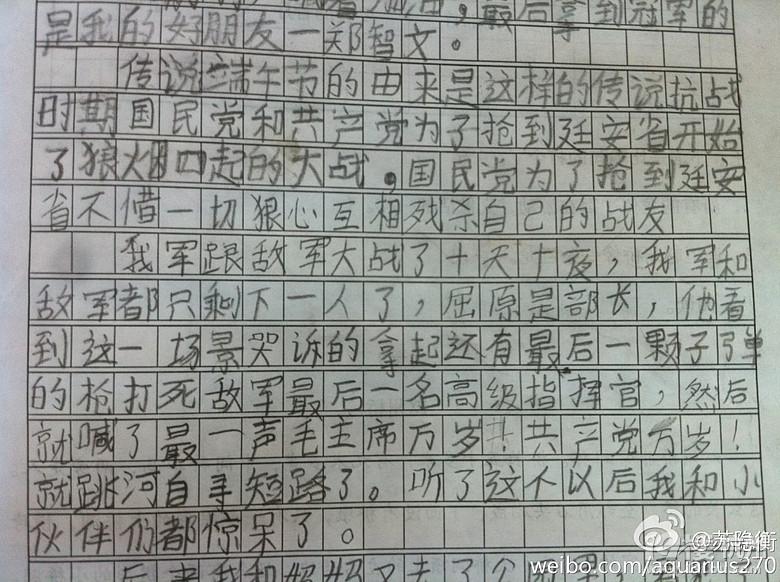 最后拿到冠军的
是我的好朋友一郑智文。
传说端午节的由来是这样的传说抗战
时期国民党和共产党为了抢到廷安省开始
了狼烟四起的大战。国民党为了抢到廷安
省不惜一切狠心互相残杀自己的战友
我军跟敌军大战了十天十夜，我军和
敌军都只剩下一人了，屈原是部长，他看
到这一场景哭诉的拿起还有最后一颗子弹
的枪打死敌军最后一名高级指挥官，然后
就喊了最一声毛主席万岁！共产党万岁！
就跳河自寻短路了。听了这个以后我和小
伙伴们都惊呆了。
后来我和妈妈又去了公园
@苏隐衡
weibo.com/aquarius270